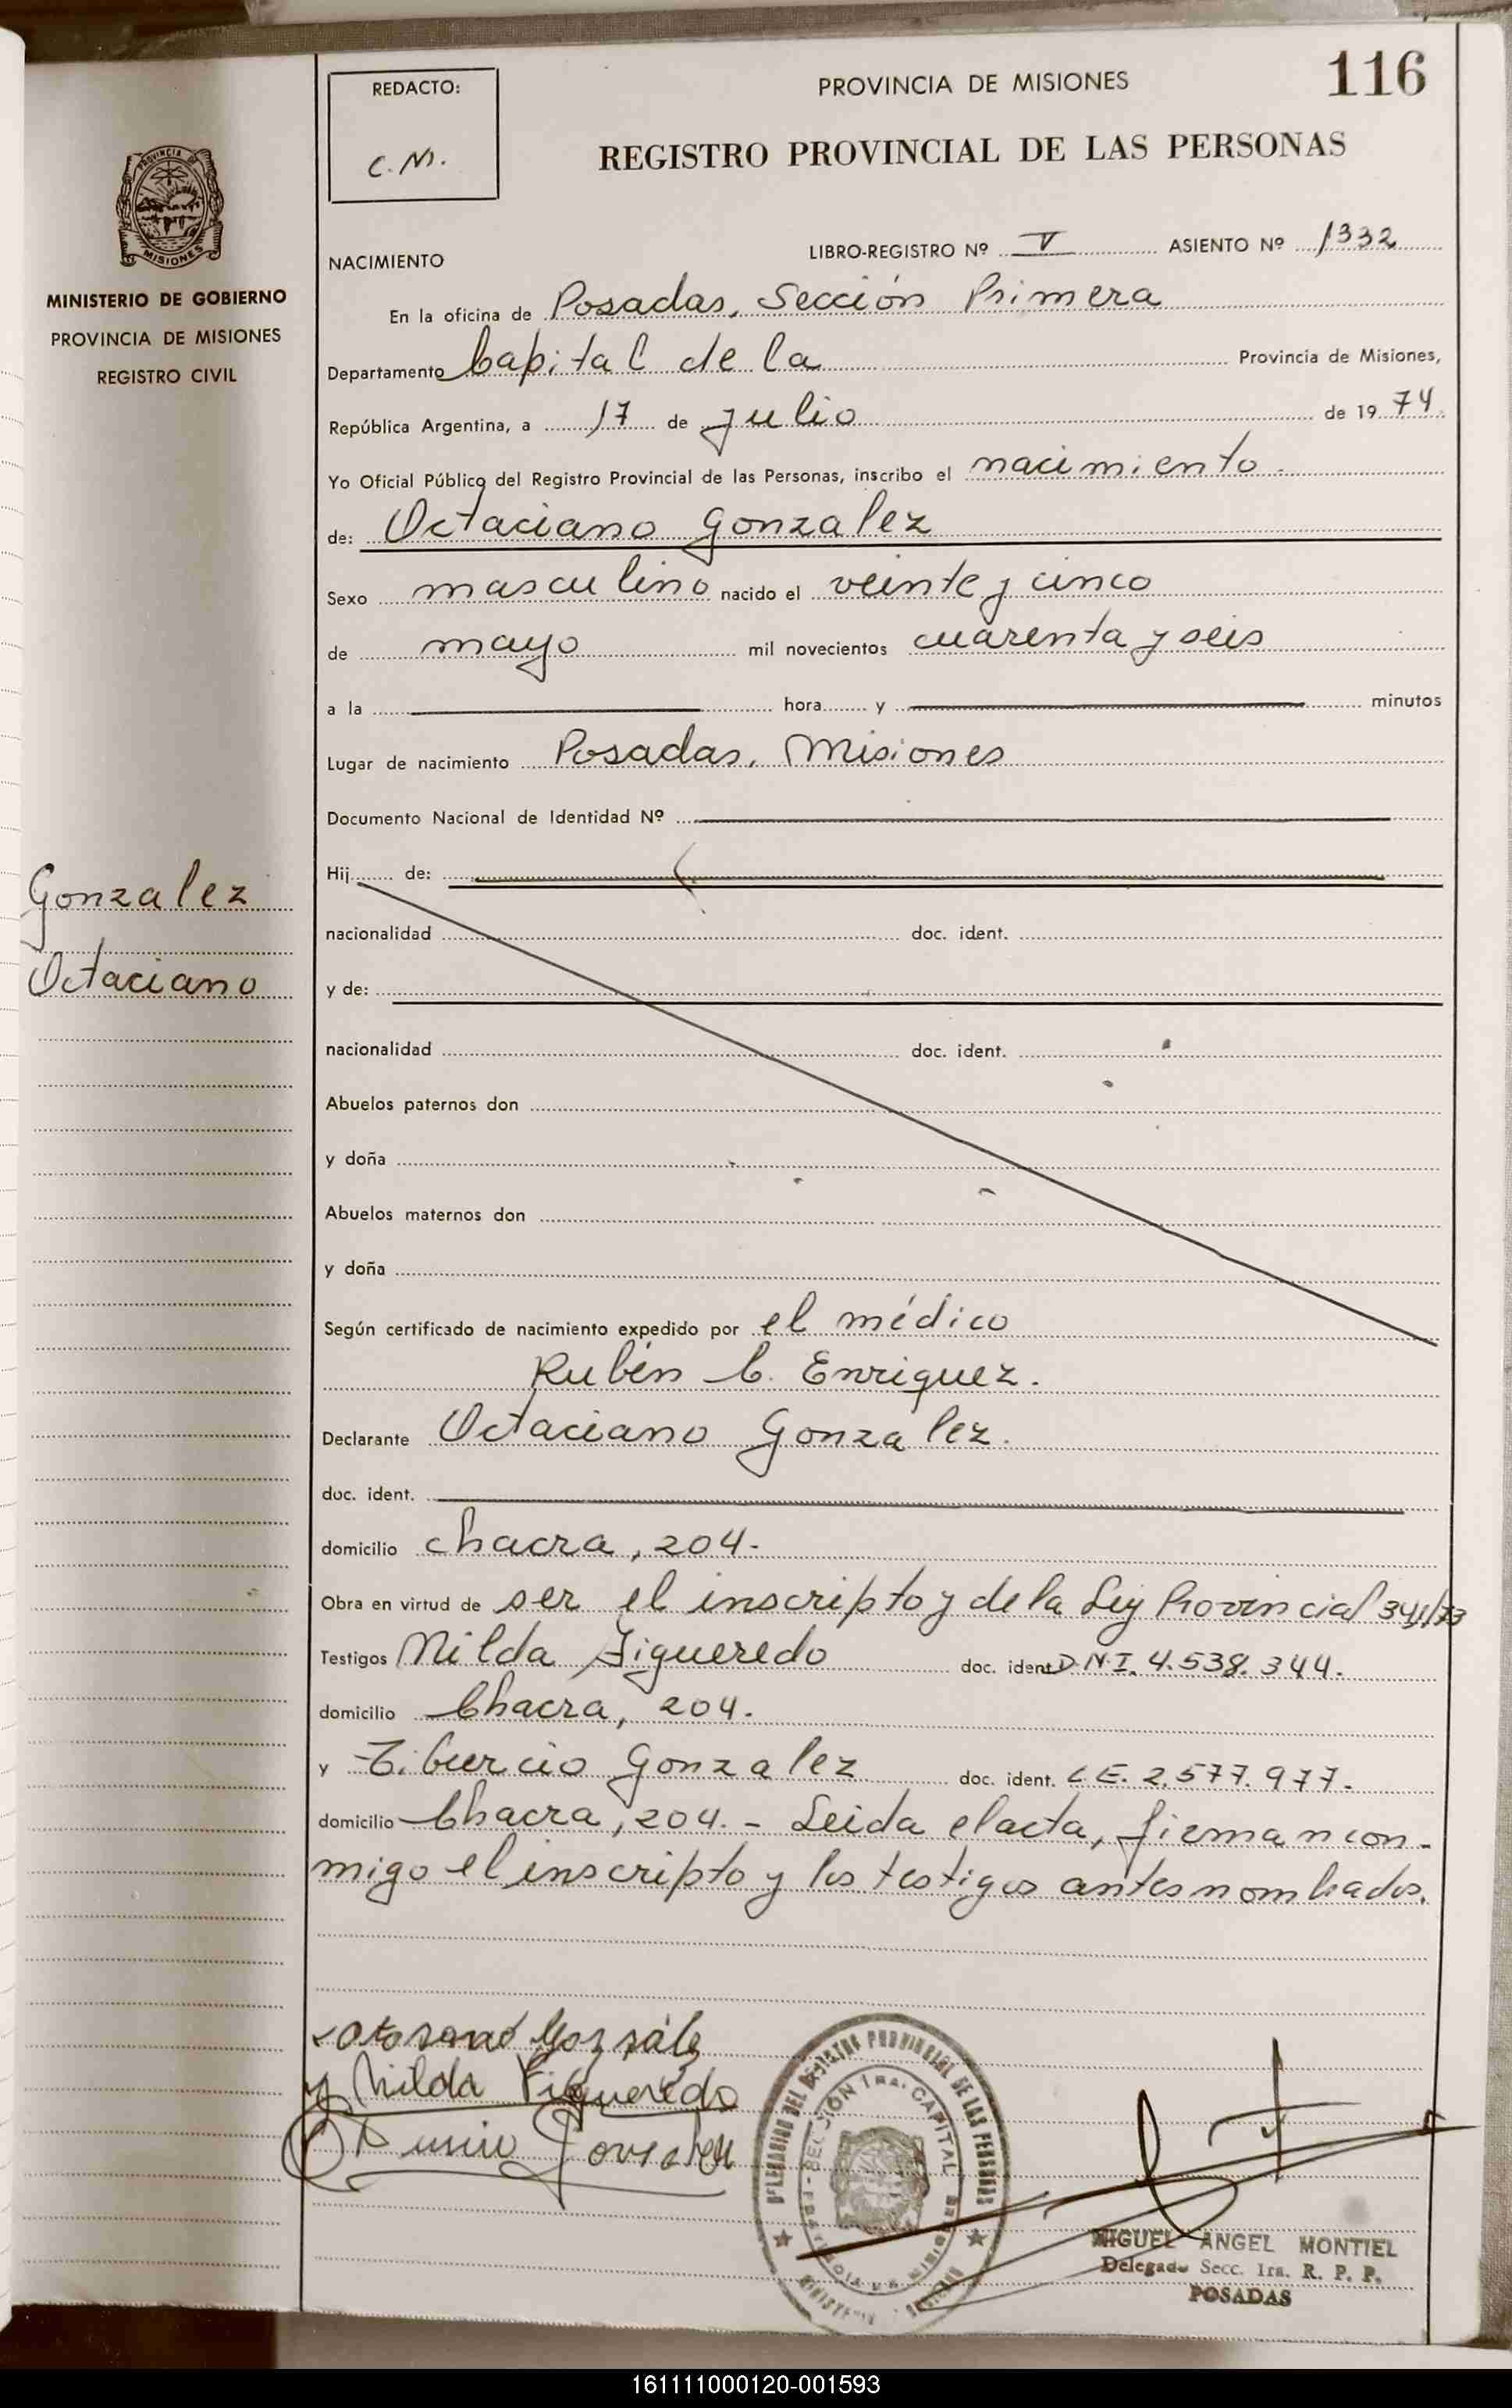 116
REDACTO:
C.M.
PROVINCIA DE MISIONES
REGISTRO PROVINCIAL DE LAS PERSONAS
PROVINCIA DE
MISIONES
MINISTERIO DE GOBIERNO
PROVINCIA DE MISIONES
REGISTRO CIVIL
NACIMIENTO
LIBRO-REGISTRO Nº V ASIENTO Nº 1332
En la oficina de Posadas, Sección Primera
Departamento Capital de la Provincia de Misiones,
República Argentina, a 17 de Julio de 1974.
Yo Oficial Público del Registro Provincial de las Personas, inscribo el nacimiento.
de: Octaciano Gonzalez
Sexo masculino nacido el veinte y cinco
de mayo mil novecientos cuarenta y seis
a la hora y minutos
Lugar de nacimiento Posadas, Misiones
Documento Nacional de Identidad Nº
Hij de:
Gonzalez
Octaciano
nacionalidad doc. ident.
y de:
nacionalidad doc. ident.
Abuelos paternos don
y doña
Abuelos maternos don
y doña
Según certificado de nacimiento expedido por el médico
Rubén C. Enriquez.
Declarante Octaciano Gonzalez.
doc. ident.
domicilio chacra, 204.
Obra en virtud de ser el inscripto y de la Ley Provincial 341/73
Testigos Nilda Figueredo doc. ident D.N.I. 4.538.344.
domicilio Chacra, 204.
y Tiburcio Gonzalez doc. ident. L.E. 2.577.977.
domicilio Chacra, 204. - Leida el acta, firman con-
migo el inscripto y los testigos antes nombrados.
Nilda Figueredo
DELEGACION DEL REGISTRO PROVINCIAL DE LAS PERSONAS
SECCION 1RA. CAPITAL
MIGUEL ANGEL MONTIEL
Delegado Secc. 1ra. R. P. P.
POSADAS
161111000120-001593